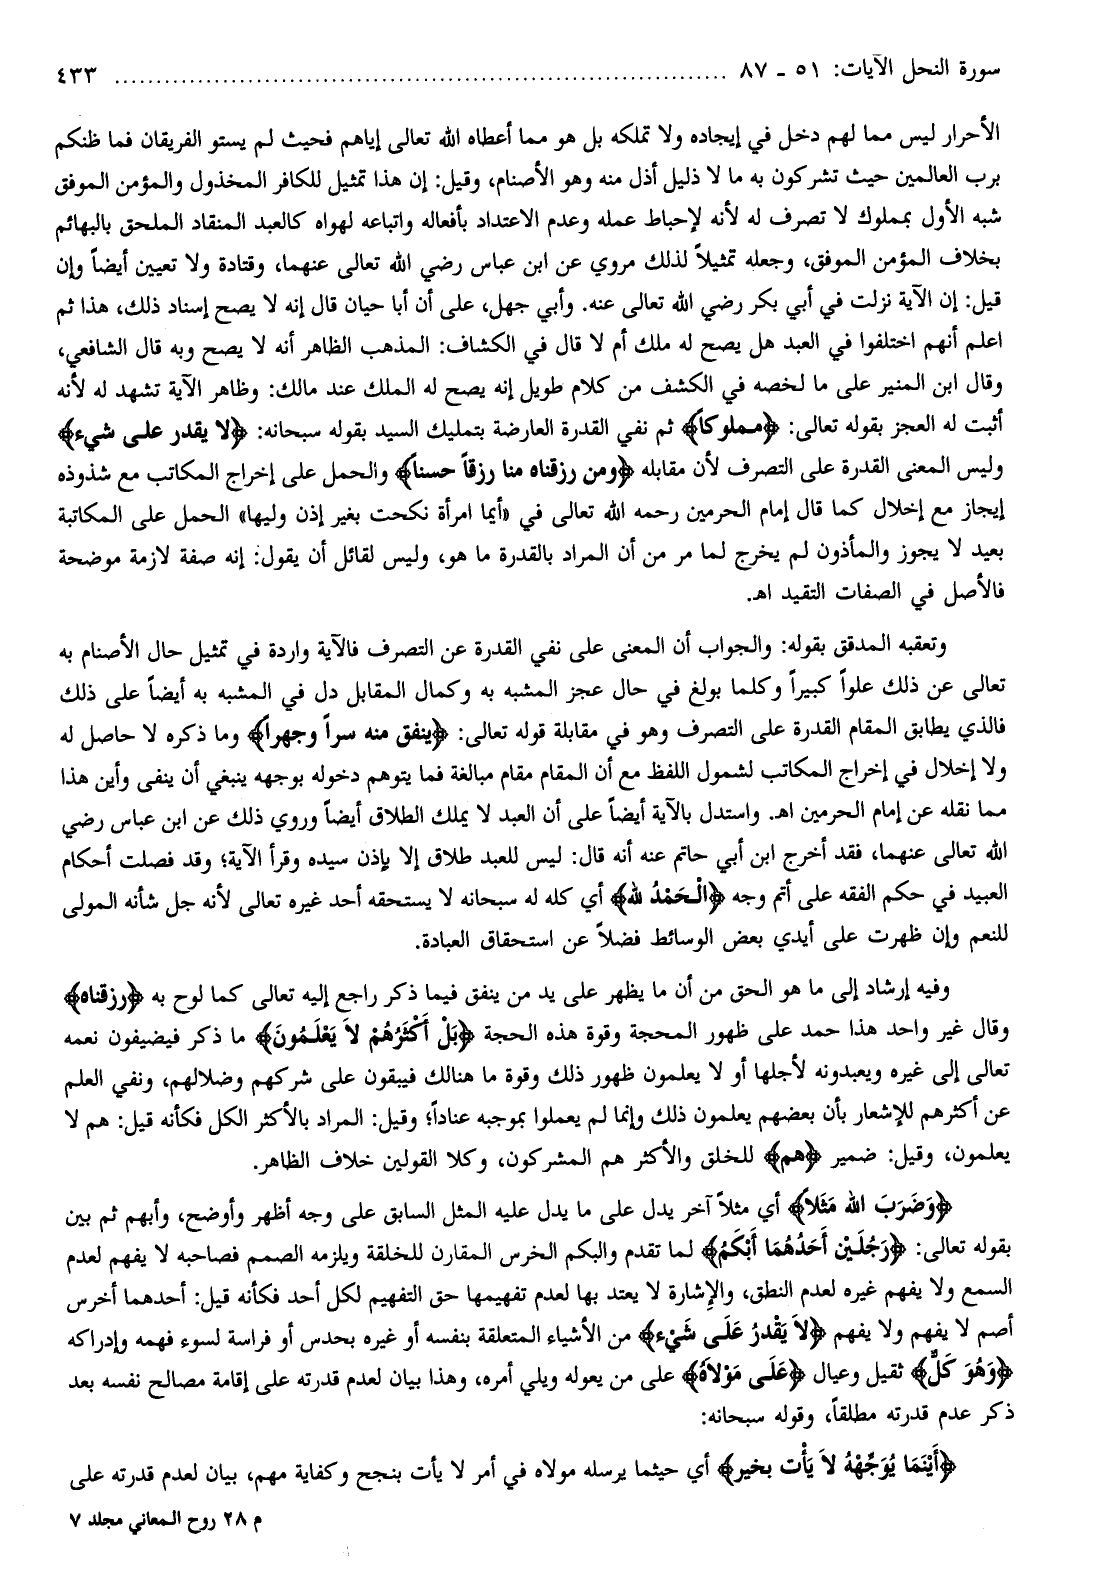 سورة النحل الآيات: ٥١ - ٨٧ ........................................................................... ٤٣٣
الأحرار ليس مما لهم دخل في إيجاده ولا تملكه بل هو مما أعطاه الله تعالى إياهم فحيث لم يستو الفريقان فما ظنكم
برب العالمين حيث تشركون به ما لا ذليل أذل منه وهو الأصنام، وقيل: إن هذا تمثيل للكافر المخذول والمؤمن الموفق
شبه الأول بمملوك لا تصرف له لأنه لإحباط عمله وعدم الاعتداد بأفعاله واتباعه لهواه كالعبد المنقاد الملحق بالبهائم
بخلاف المؤمن الموفق، وجعله تمثيلاً لذلك مروي عن ابن عباس رضي الله تعالى عنهما، وقتادة ولا تعيين أيضاً وإن
قيل: إن الآية نزلت في أبي بكر رضي الله تعالى عنه. وأبي جهل، على أن أبا حيان قال إنه لا يصح إسناد ذلك، هذا ثم
اعلم أنهم اختلفوا في العبد هل يصح له ملك أم لا قال في الكشاف: المذهب الظاهر أنه لا يصح وبه قال الشافعي،
وقال ابن المنير على ما لخصه في الكشف من كلام طويل إنه يصح له الملك عند مالك: وظاهر الآية تشهد له لأنه
أثبت له العجز بقوله تعالى: ﴿مملوكاً﴾ ثم نفي القدرة العارضة بتمليك السيد بقوله سبحانه: ﴿لا يقدر على شيء﴾
وليس المعنى القدرة على التصرف لأن مقابله ﴿ومن رزقناه منا رزقاً حسناً﴾ والحمل على إخراج المكاتب مع شذوذه
إيجاز مع إخلال كما قال إمام الحرمين رحمه الله تعالى في «أيما امرأة نكحت بغير إذن وليها» الحمل على المكاتبة
بعيد لا يجوز والمأذون لم يخرج لما مر من أن المراد بالقدرة ما هو، وليس لقائل أن يقول: إنه صفة لازمة موضحة
فالأصل في الصفات التقيد اهـ.
وتعقبه المدقق بقوله: والجواب أن المعنى على نفي القدرة عن التصرف فالآية واردة في تمثيل حال الأصنام به
تعالى عن ذلك علواً كبيراً وكلما بولغ في حال عجز المشبه به وكمال المقابل دل في المشبه به أيضاً على ذلك
فالذي يطابق المقام القدرة على التصرف وهو في مقابلة قوله تعالى: ﴿ينفق منه سراً وجهراً﴾ وما ذكره لا حاصل له
ولا إخلال في إخراج المكاتب لشمول اللفظ مع أن المقام مقام مبالغة فما يتوهم دخوله بوجهه ينبغي أن ينفى وأين هذا
مما نقله عن إمام الحرمين اهـ. واستدل بالآية أيضاً على أن العبد لا يملك الطلاق أيضاً وروي ذلك عن ابن عباس رضي
الله تعالى عنهما، فقد أخرج ابن أبي حاتم عنه أنه قال: ليس للعبد طلاق إلا بإذن سيده وقرأ الآية؛ وقد فصلت أحكام
العبيد في حكم الفقه على أتم وجه ﴿الْحَمْدُ لله﴾ أي كله له سبحانه لا يستحقه أحد غيره تعالى لأنه جل شأنه المولى
للنعم وإن ظهرت على أيدي بعض الوسائط فضلاً عن استحقاق العبادة.
وفيه إرشاد إلى ما هو الحق من أن ما يظهر على يد من ينفق فيما ذكر راجع إليه تعالى كما لوح به ﴿رزقناه﴾
وقال غير واحد هذا حمد على ظهور المحجة وقوة هذه الحجة ﴿بَلْ أَكْثَرُهُمْ لاَ يَعْلَمُونَ﴾ ما ذكر فيضيفون نعمه
تعالى إلى غيره ويعبدونه لأجلها أو لا يعلمون ظهور ذلك وقوة ما هنالك فيبقون على شركهم وضلالهم، ونفي العلم
عن أكثرهم للإشعار بأن بعضهم يعلمون ذلك وإنما لم يعملوا بموجبه عناداً؛ وقيل: المراد بالأكثر الكل فكأنه قيل: هم لا
يعلمون، وقيل: ضمير ﴿هم﴾ للخلق والأكثر هم المشركون، وكلا القولين خلاف الظاهر.
﴿وَضَرَبَ الله مَثَلاً﴾ أي مثلاً آخر يدل على ما يدل عليه المثل السابق على وجه أظهر وأوضح، وأبهم ثم بين
بقوله تعالى: ﴿رَجُلَيْن أَحَدُهُمَا أَبْكَمُ﴾ لما تقدم والبكم الخرس المقارن للخلقة ويلزمه الصمم فصاحبه لا يفهم لعدم
السمع ولا يفهم غيره لعدم النطق، والإشارة لا يعتد بها لعدم تفهيمها حق التفهيم لكل أحد فكأنه قيل: أحدهما أخرس
أصم لا يفهم ولا يفهم ﴿لاَ يَقْدرُ عَلَى شَيْء﴾ من الأشياء المتعلقة بنفسه أو غيره بحدس أو فراسة لسوء فهمه وإدراكه
﴿وَهُوَ كَلٌّ﴾ ثقيل وعيال ﴿عَلَى مَوْلاَهُ﴾ على من يعوله ويلي أمره، وهذا بيان لعدم قدرته على إقامة مصالح نفسه بعد
ذكر عدم قدرته مطلقاً، وقوله سبحانه:
﴿أَيْنَمَا يُوَجِّههُ لاَ يَأْت بخير﴾ أي حيثما يرسله مولاه في أمر لا يأت بنجح وكفاية مهم، بيان لعدم قدرته على
م ٢٨ روح المعاني مجلد ٧